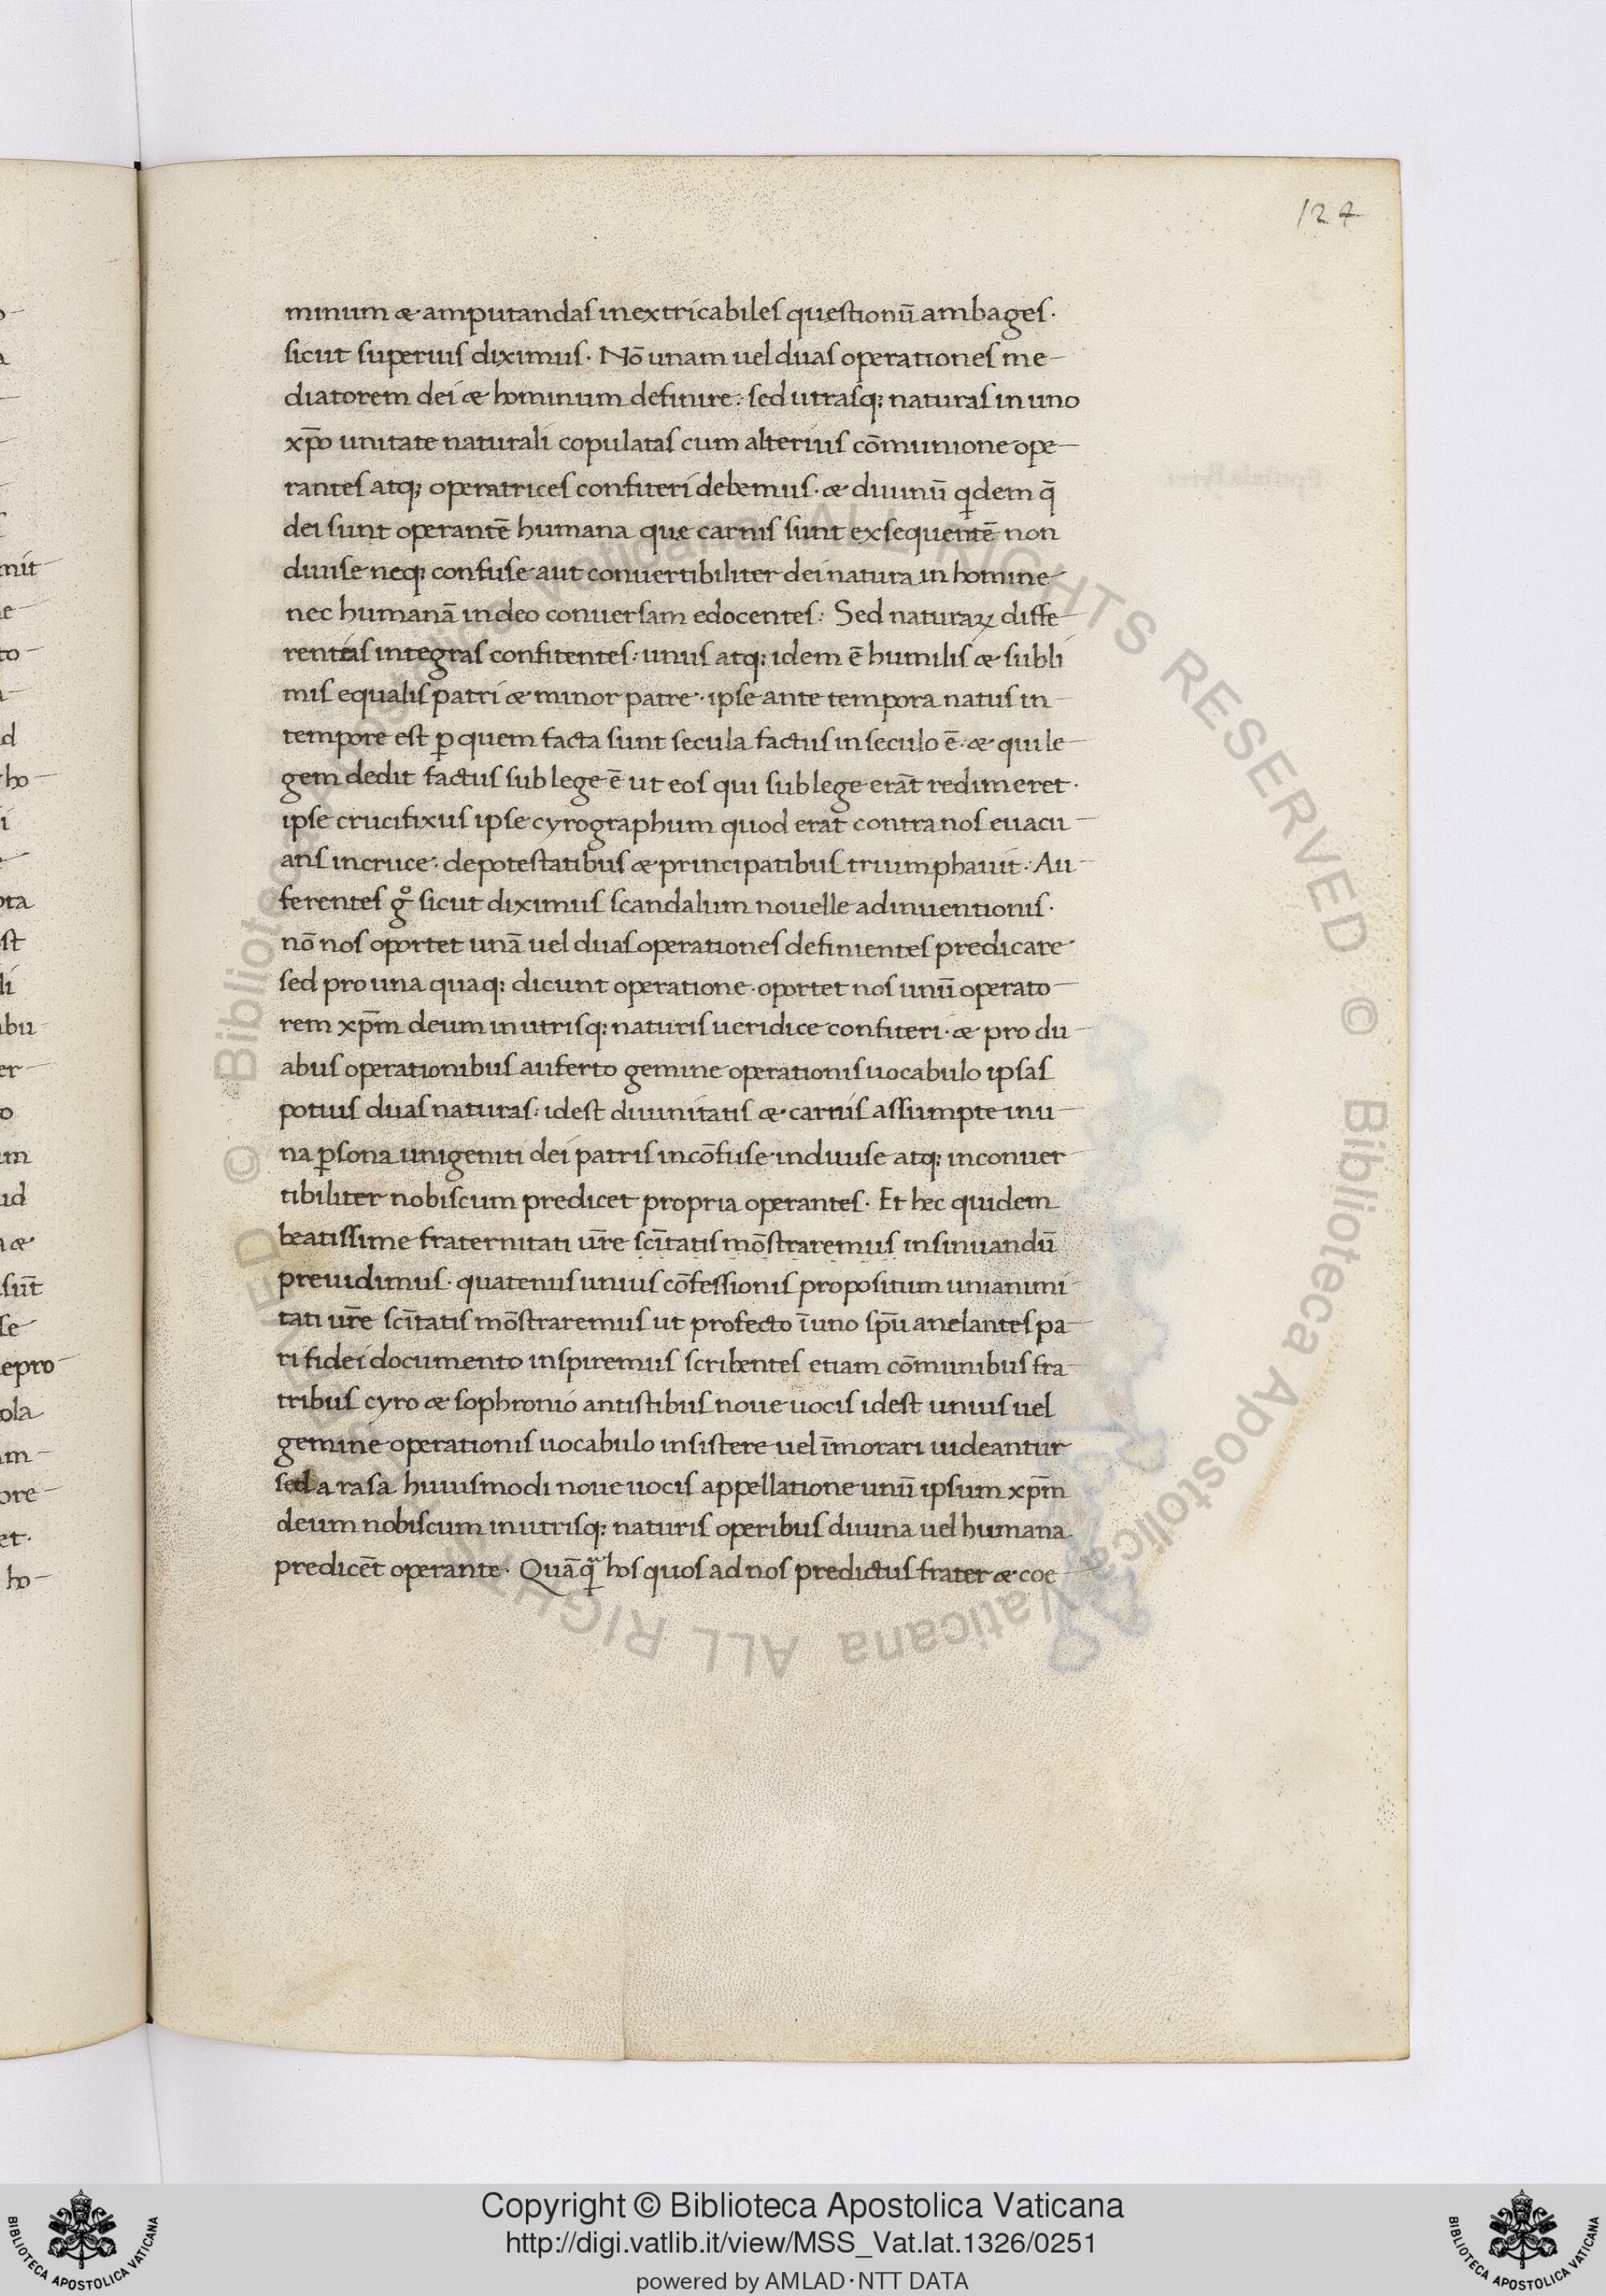 124
minum & amputandas inextricabiles questionū ambages.
sicut superius diximus. Nō unam uel duas operationes me-
diatorem dei & hominum definire: sed utrasq; naturas in uno
xp̄o unitate naturali copulatas cum alterius cōmunione ope-
rantes atq; operatrices confiteri debemus. & diuinū qdem q̄
dei sunt operantē humana que carnis sunt exsequentē non
diuise neq; confuse aut conuertibiliter dei natura in homine
nec humanā in deo conuersam edocentes: Sed naturaꝝ diffe
rentias integras confitentes: unus atq; idem ē humilis & subli
mis equalis patri & minor patre. ipse ante tempora natus in
tempore est ꝑ quem facta sunt secula factus in seculo ē. & qui le
gem dedit factus sub lege ē ut eos qui sub lege erāt redimeret.
ipse crucifixus ipse cyrographum quod erat contra nos euacu
ans in cruce. de potestatibus & principatibus triumphauit. Au
ferentes gͦ sicut diximus scandalum nouelle adinuentionis.
nō nos oportet unā uel duas operationes definientes predicare
sed pro una quaq; dicunt operatione. oportet nos unū operato
rem xp̄m deum in utrisq; naturis ueridice confiteri. & pro du
abus operationibus auferto gemine operationis uocabulo ipsas
potius duas naturas: idest diuinitatis & carnis assumpte in u
na ꝑsona unigeniti dei patris incōfuse indiuise atq; inconuer
tibiliter nobiscum predicet propria operantes. Et hec quidem
beatissime fraternitati ur̄e sci̅tatis mōstraremus insinuandū
preuidimus. quatenus unius cōfessionis propositum unianimi
tati ur̄e sci̅tatis mōstraremus ut profecto ī uno sp̄u anelantes pa
ri fidei documento inspiremus scribentes etiam cōmunibus fra
tribus cyro & sophronio antistibus noue uocis idest unius uel
gemine operationis uocabulo insistere uel īmorari uideantur
sed a rasa huiusmodi noue uocis appellatione unū ipsum xp̄m
deum nobiscum in utrisq; naturis operibus diuina uel humana
predicēt operante. Quāqᷓ hos quos ad nos predictus frater & coe
Copyright © Biblioteca Apostolica Vaticana
http://digi.vatlib.it/view/MSS_Vat.lat.1326/0251
powered by AMLAD·NTT DATA